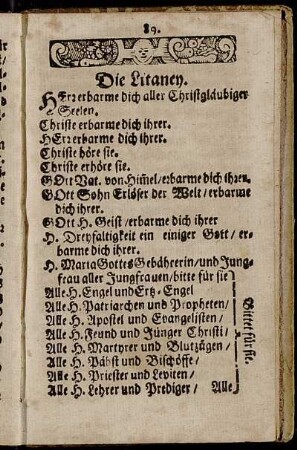 89.
Die Litaney.
HErr erbarme dich aller Christgläubiger
Seelen.
Christe erbarme dich ihrer.
HErr erbarme dich ihrer.
Christe höre sie.
Christe erhöre sie.
GOtt Vat. von Him̃el/erbarme dich ihrer.
GOtt Sohn Erlöser der Welt/erbarme
dich ihrer.
GOtt H. Geist/erbarme dich ihrer
H. Dreyfaltigkeit ein einiger Gott/er-
barme dich ihrer.
H. Maria Gottes Gebäherein/und Jung-
frau aller Jungfrauen/bitte für sie
Alle H. Engel und Ertz-Engel
Alle H. Patriarchen und Propheten/
Alle H. Apostel und Evangelisten/
Alle H. Freund und Jünger Christi/
Alle H. Martyrer und Blutzügen/
Alle H. Päbst und Bischöffe/
Alle H. Priester und Leviten/
Alle H. Lehrer und Prediger/ Alle
Bittet für sie.